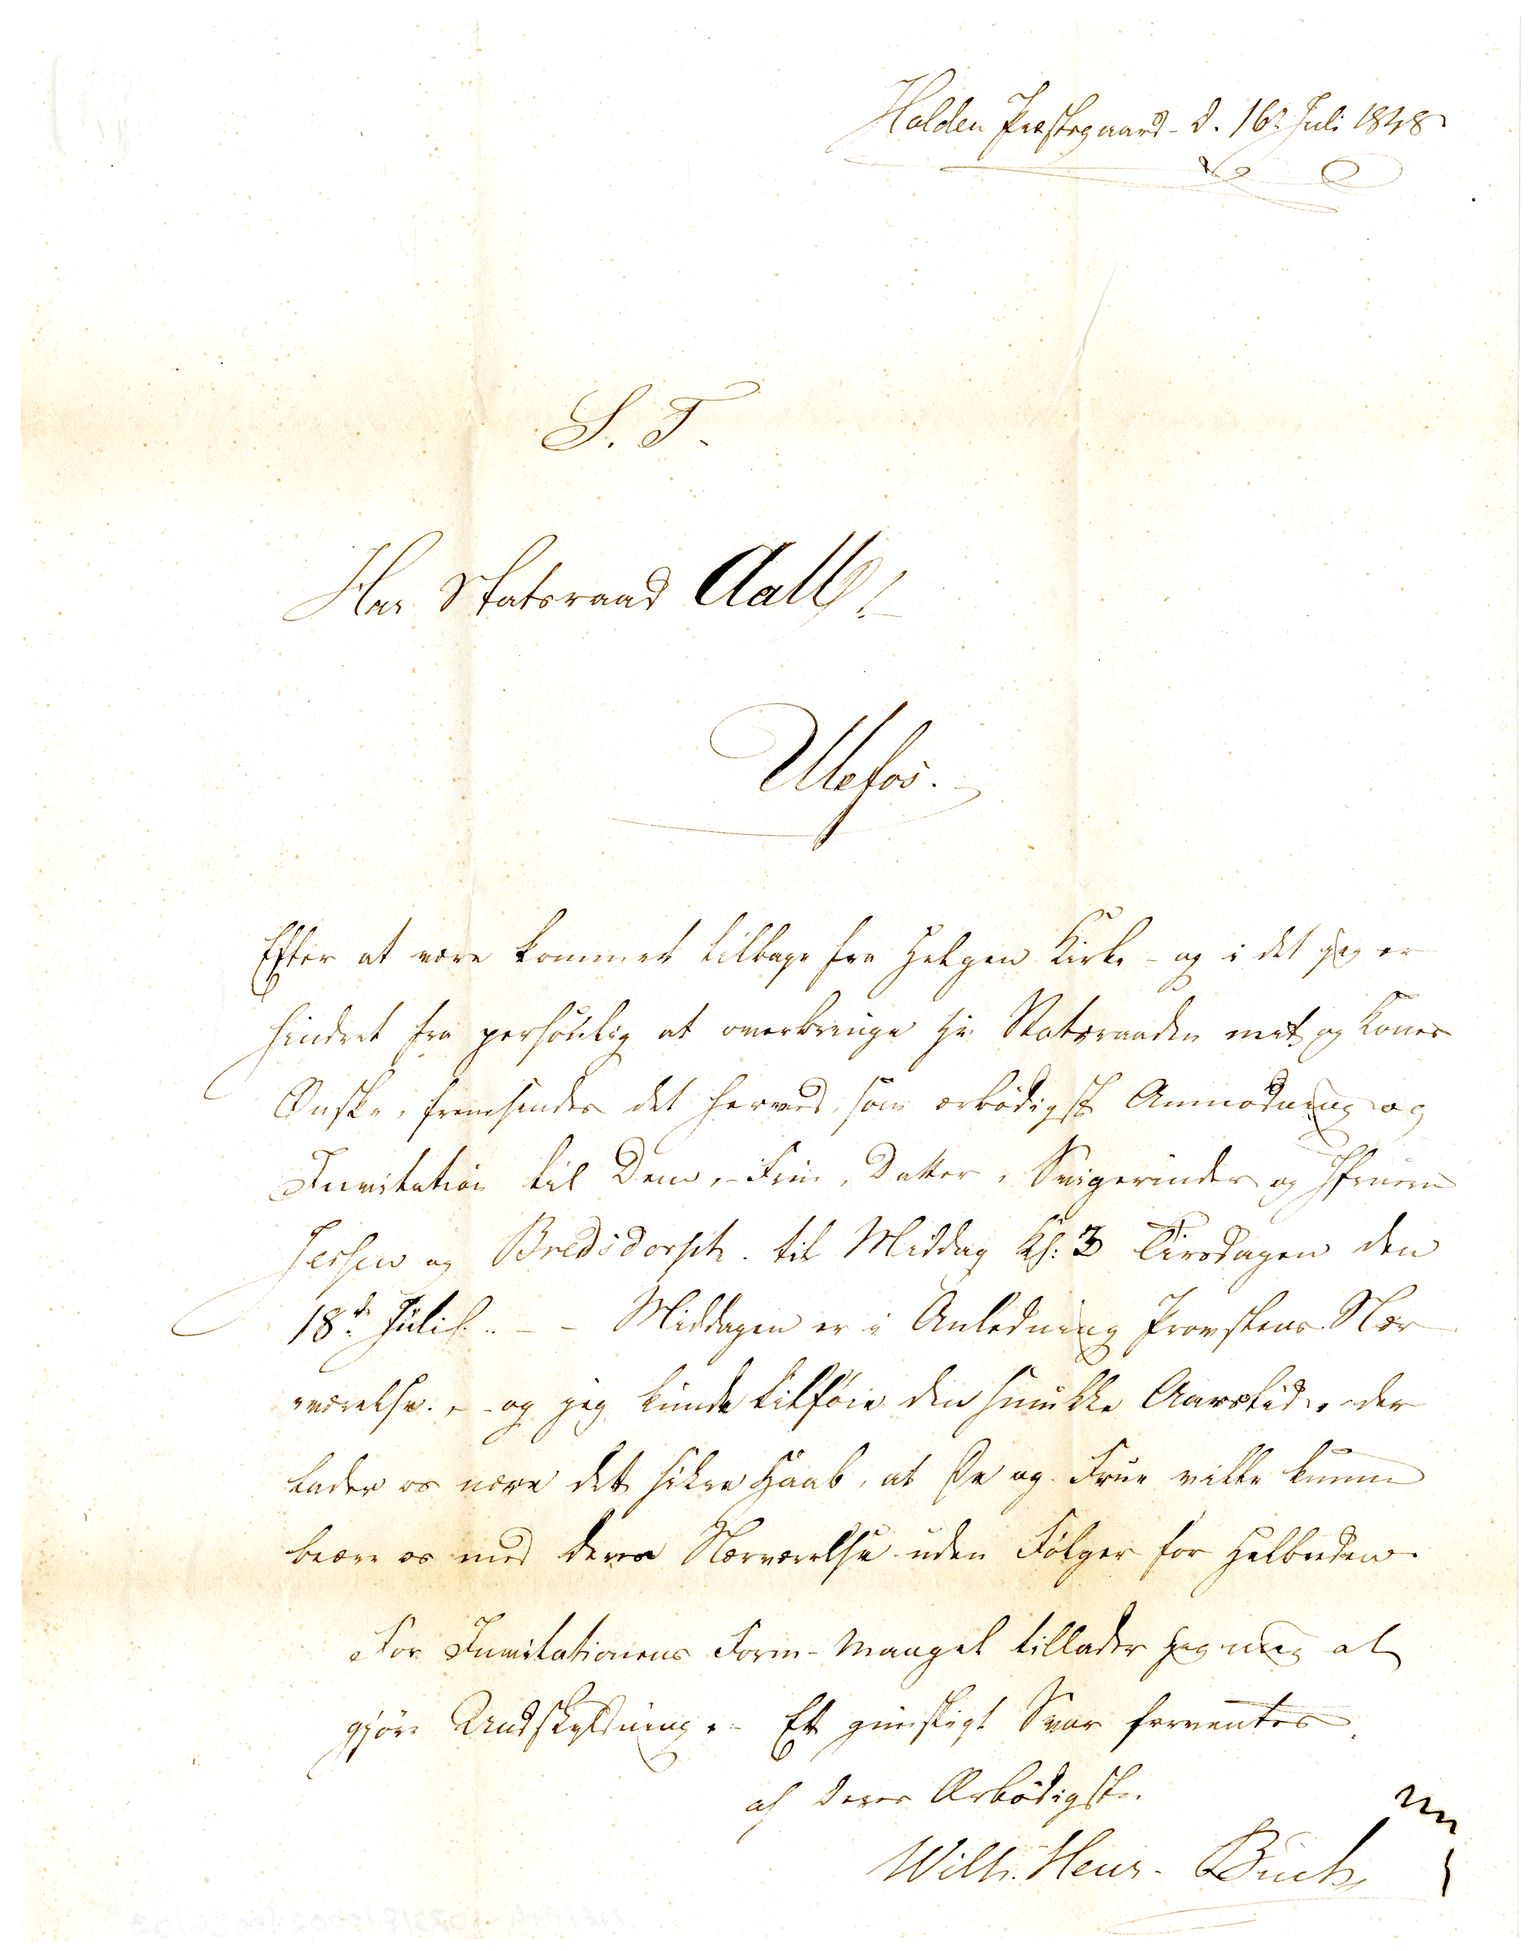 Holden Præstegaard d. 16. Juli 1848
S. T.
Herr Statsraad Aall!
Ulefos.
Efter at være kommet tilbage fra Helgen Kirke - og i det jeg er
hindret fra personlig at overbringe Hr. Statsraaden mit og Kones
Ønske, fremsendes det herved som ærbödigst Anmodning og
Invitation til Dem, - Frue, Datter, Svigerinder og Frøken
Jessen og Bredsdorph. til Middag Kl: 3 Tirsdagen den
18de Juli. - - Middagen er i Anledning Provstens Nær-
værelse. - og jeg kunde tilføie den smukke Aarstid, der
lader os nære det sikre Haab, at De og Frue ville kunne
beære os med deres Nærværelse uden Følger for Helbreden.
For Invitationens Form-Mangel tillader jeg mig at
gjöre Undskyldning. - Et gunstigt Svar forventes
af Deres Ærbödigste
Wilh. Henr. Buch